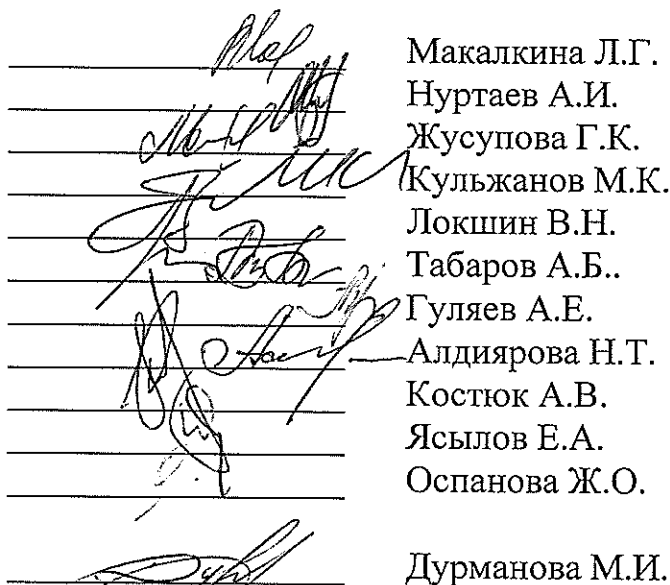 Макалкина Л.Г.
Нуртаев А.И.
Жусупова Г.К.
Кульжанов М.К.
Локшин В.Н.
Табаров А.Б..
Гуляев А.Е.
Алдиярова Н.Т.
Костюк А.В.
Ясылов Е.А.
Оспанова Ж.О.
Дурманова М.И.